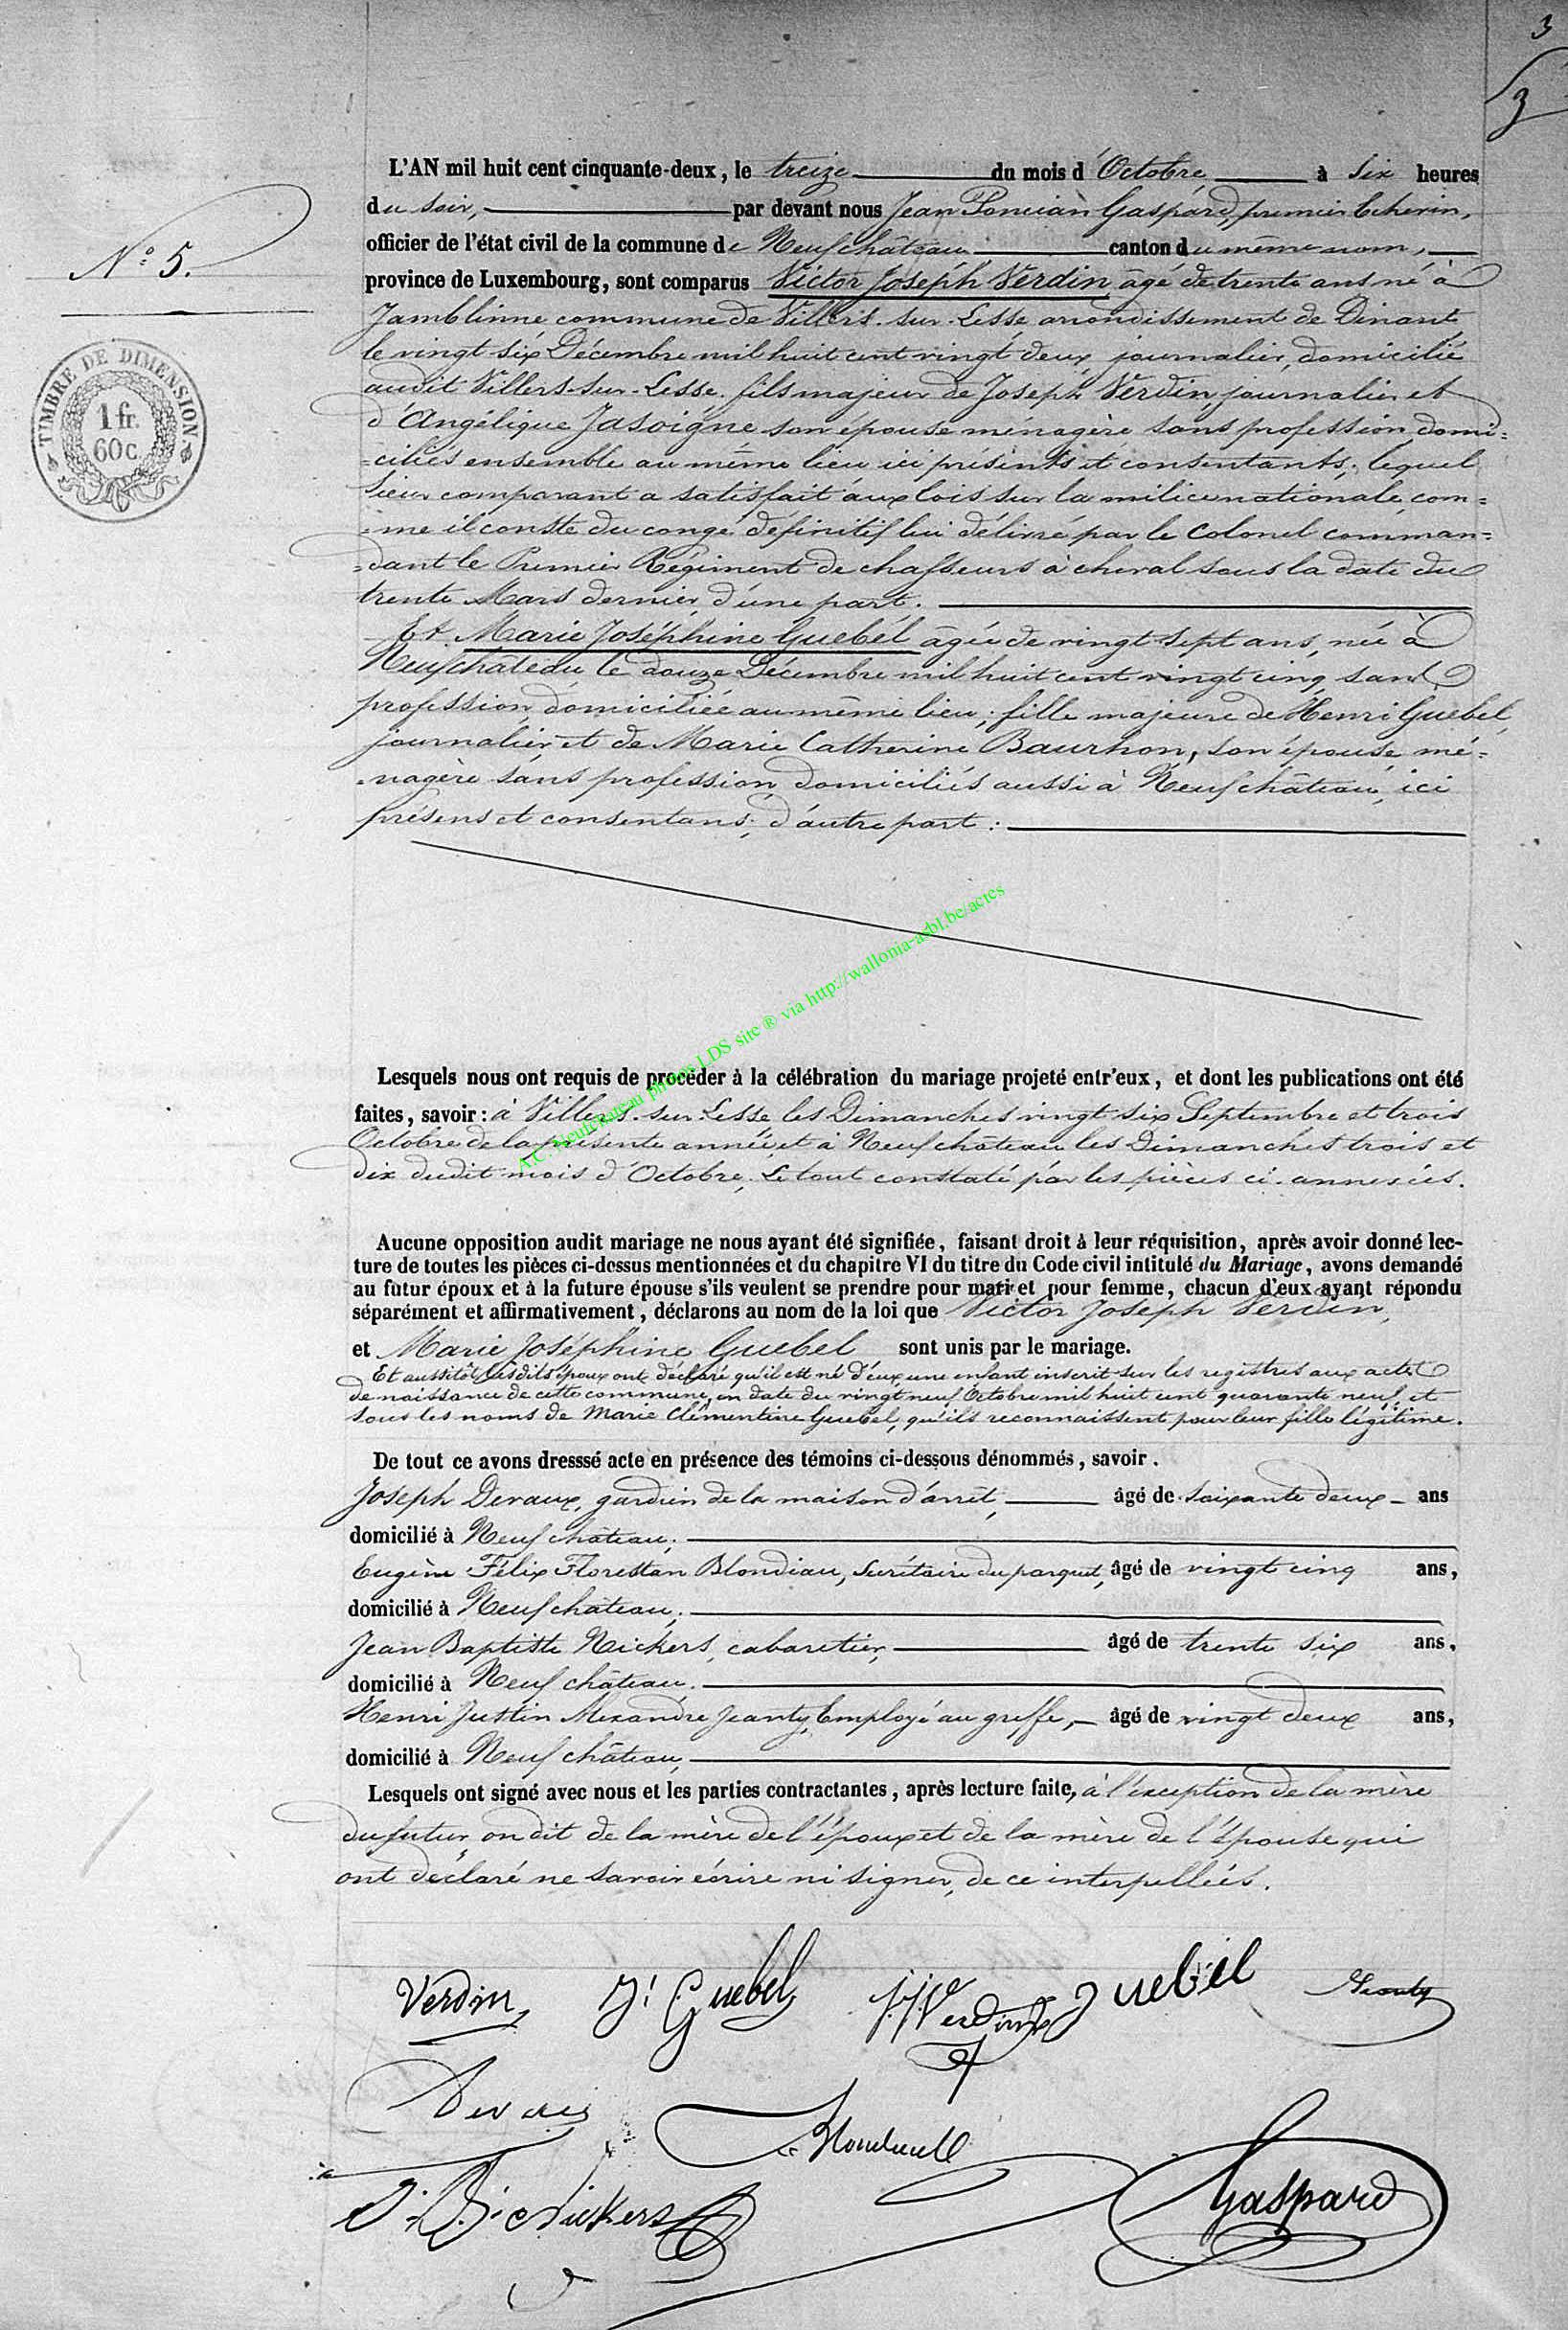 3
3
L'AN mil huit cent cinquante-deux, le treize du mois d'Octobre à six heures
du soir, par devant nous Jean Poncian Gaspard, premier Echevin,
officier de l'état civil de la commune de Neufchâteau canton du même nom,
province de Luxembourg, sont comparus Victor Joseph Verdin âgé de trente ans né à
Jamblinne commune de Villers-sur-Lesse arrondissement de Dinant
le vingt six Décembre mil huit cent vingt deux, journalier, domicilié
audit Villers-sur-Lesse, fils majeur de Joseph Verdin, journalier et
d'Angélique Jasoigne son épouse ménagère sans profession, domi=
=ciliés ensemble au même lieu ici présents et consentants; lequel
Sieur comparant a satisfait aux lois sur la milice nationale, com=
=me il conste du congé définitif lui délivré par le Colonel comman=
=dant le Premier Régiment de chasseurs à cheval sous la date du
trente Mars dernier, d'une part.
Et Marie Joséphine Guebel âgée de vingt sept ans, née à
Neufchâteau, le douze Décembre mil huit cent vingt cinq, sans
profession, domiciliée au même lieu; fille majeure de Henri Guebel,
journalier et de Marie Catherine Baurhon, son épouse mé=
=nagère sans profession, domiciliés aussi à Neufchâteau, ici
présens et consentans, d'autre part:
N.º 5.
TIMBRE DE DIMENSION
1 fr.
60 c.
A.C. Neufchateau photos LDS site ® via http://wallonia-asbl.be/actes
Lesquels nous ont requis de procéder à la célébration du mariage projeté entr'eux, et dont les publications ont été
faites, savoir: à Villers-sur-Lesse les Dimanches vingt six Septembre et trois
Octobre de la présente année, et à Neufchâteau les Dimanches trois et
dix dudit mois d'Octobre. Le tout constaté par les pièces ci-annexées.
Aucune opposition audit mariage ne nous ayant été signifiée, faisant droit à leur réquisition, après avoir donné lec-
ture de toutes les pièces ci-dessus mentionnées et du chapitre VI du titre du Code civil intitulé du Mariage, avons demandé
au futur époux et à la future épouse s'ils veulent se prendre pour mari et pour femme, chacun d'eux ayant répondu
séparément et affirmativement, déclarons au nom de la loi que Victor Joseph Verdin,
et Marie Joséphine Guebel sont unis par le mariage.
Et aussitôt lesdits époux ont déclaré qu'il est né d'eux une enfant inscrit sur les registres aux actes
de naissance de cette commune, en date du vingt neuf Octobre mil huit cent quarante neuf, et
sous les noms de Marie Clémentine Guebel, qu'ils reconnaissent pour leur fille légitime.
De tout ce avons dresssé acte en présence des témoins ci-dessous dénommés, savoir.
Joseph Devaux, gardien de la maison d'arrêt, âgé de soixante deux ans
domicilié à Neufchâteau,
Eugène Félix Florestan Blondiau, Secrétaire du parquet, âgé de vingt cinq ans,
domicilié à Neufchâteau,
Jean Baptiste Nickers, cabaretier, âgé de trente six ans,
domicilié à Neufchâteau.
Henri Justin Alexandre Jeanty, Employé au greffe, âgé de vingt deux ans,
domicilié à Neufchâteau,
Lesquels ont signé avec nous et les parties contractantes, après lecture faite, à l'exception de la mère
du futur, on dit de la mère de l'époux et de la mère de l'épouse qui
ont déclaré ne savoir écrire ni signer, de ce interpellées.
Verdin J. Guebel Verdin Guebel Jeanty
Devaux
Nickers Gaspard